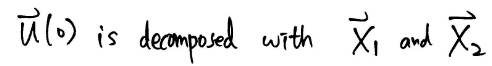 $\vec{u}(0)$ is decomposed with $\vec{X}_1$ and $\vec{X}_2$